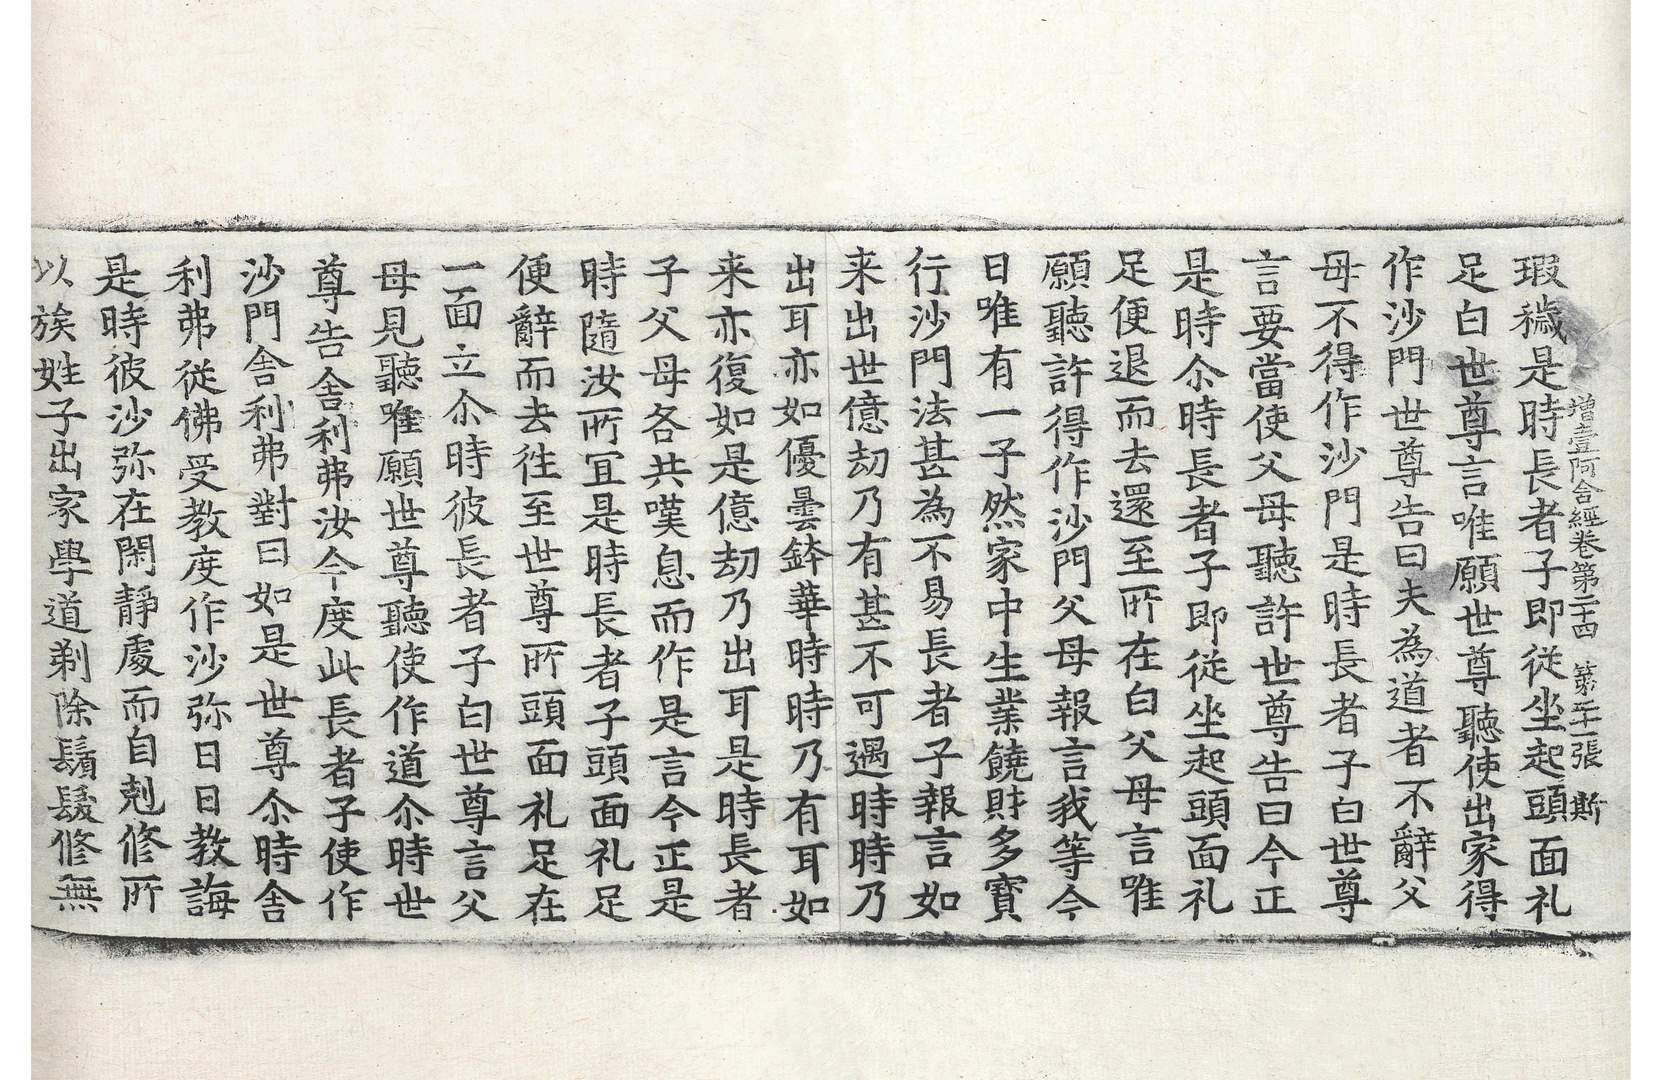 增壹阿含經卷第二十四　第二十一張　斯
瑕穢是時長者子即從坐起頭面礼
足白世尊言唯願世尊聽使出家得
作沙門世尊告曰夫為道者不辭父
母不得作沙門是時長者子白世尊
言要當使父母聽許世尊告曰今正
是時尒時長者子即從坐起頭面礼
足便退而去還至所在白父母言唯
願聽許得作沙門父母報言我等今
日唯有一子然家中生業饒財多寶
行沙門法甚為不易長者子報言如
来出世億劫乃有甚不可遇時時乃
出耳亦如優曇鉢華時時乃有耳如
来亦復如是億劫乃出耳是時長者
子父母各共嘆息而作是言今正是
時隨汝所宜是時長者子頭面礼足
便辭而去往至世尊所頭面礼足在
一面立尒時彼長者子白世尊言父
母見聽唯願世尊聽使作道尒時世
尊告舍利弗汝今度此長者子使作
沙門舍利弗對曰如是世尊尒時舍
利弗從佛受教度作沙弥日日教誨
是時彼沙弥在閑靜處而自剋修所
以族姓子出家學道剃除鬚髮修無